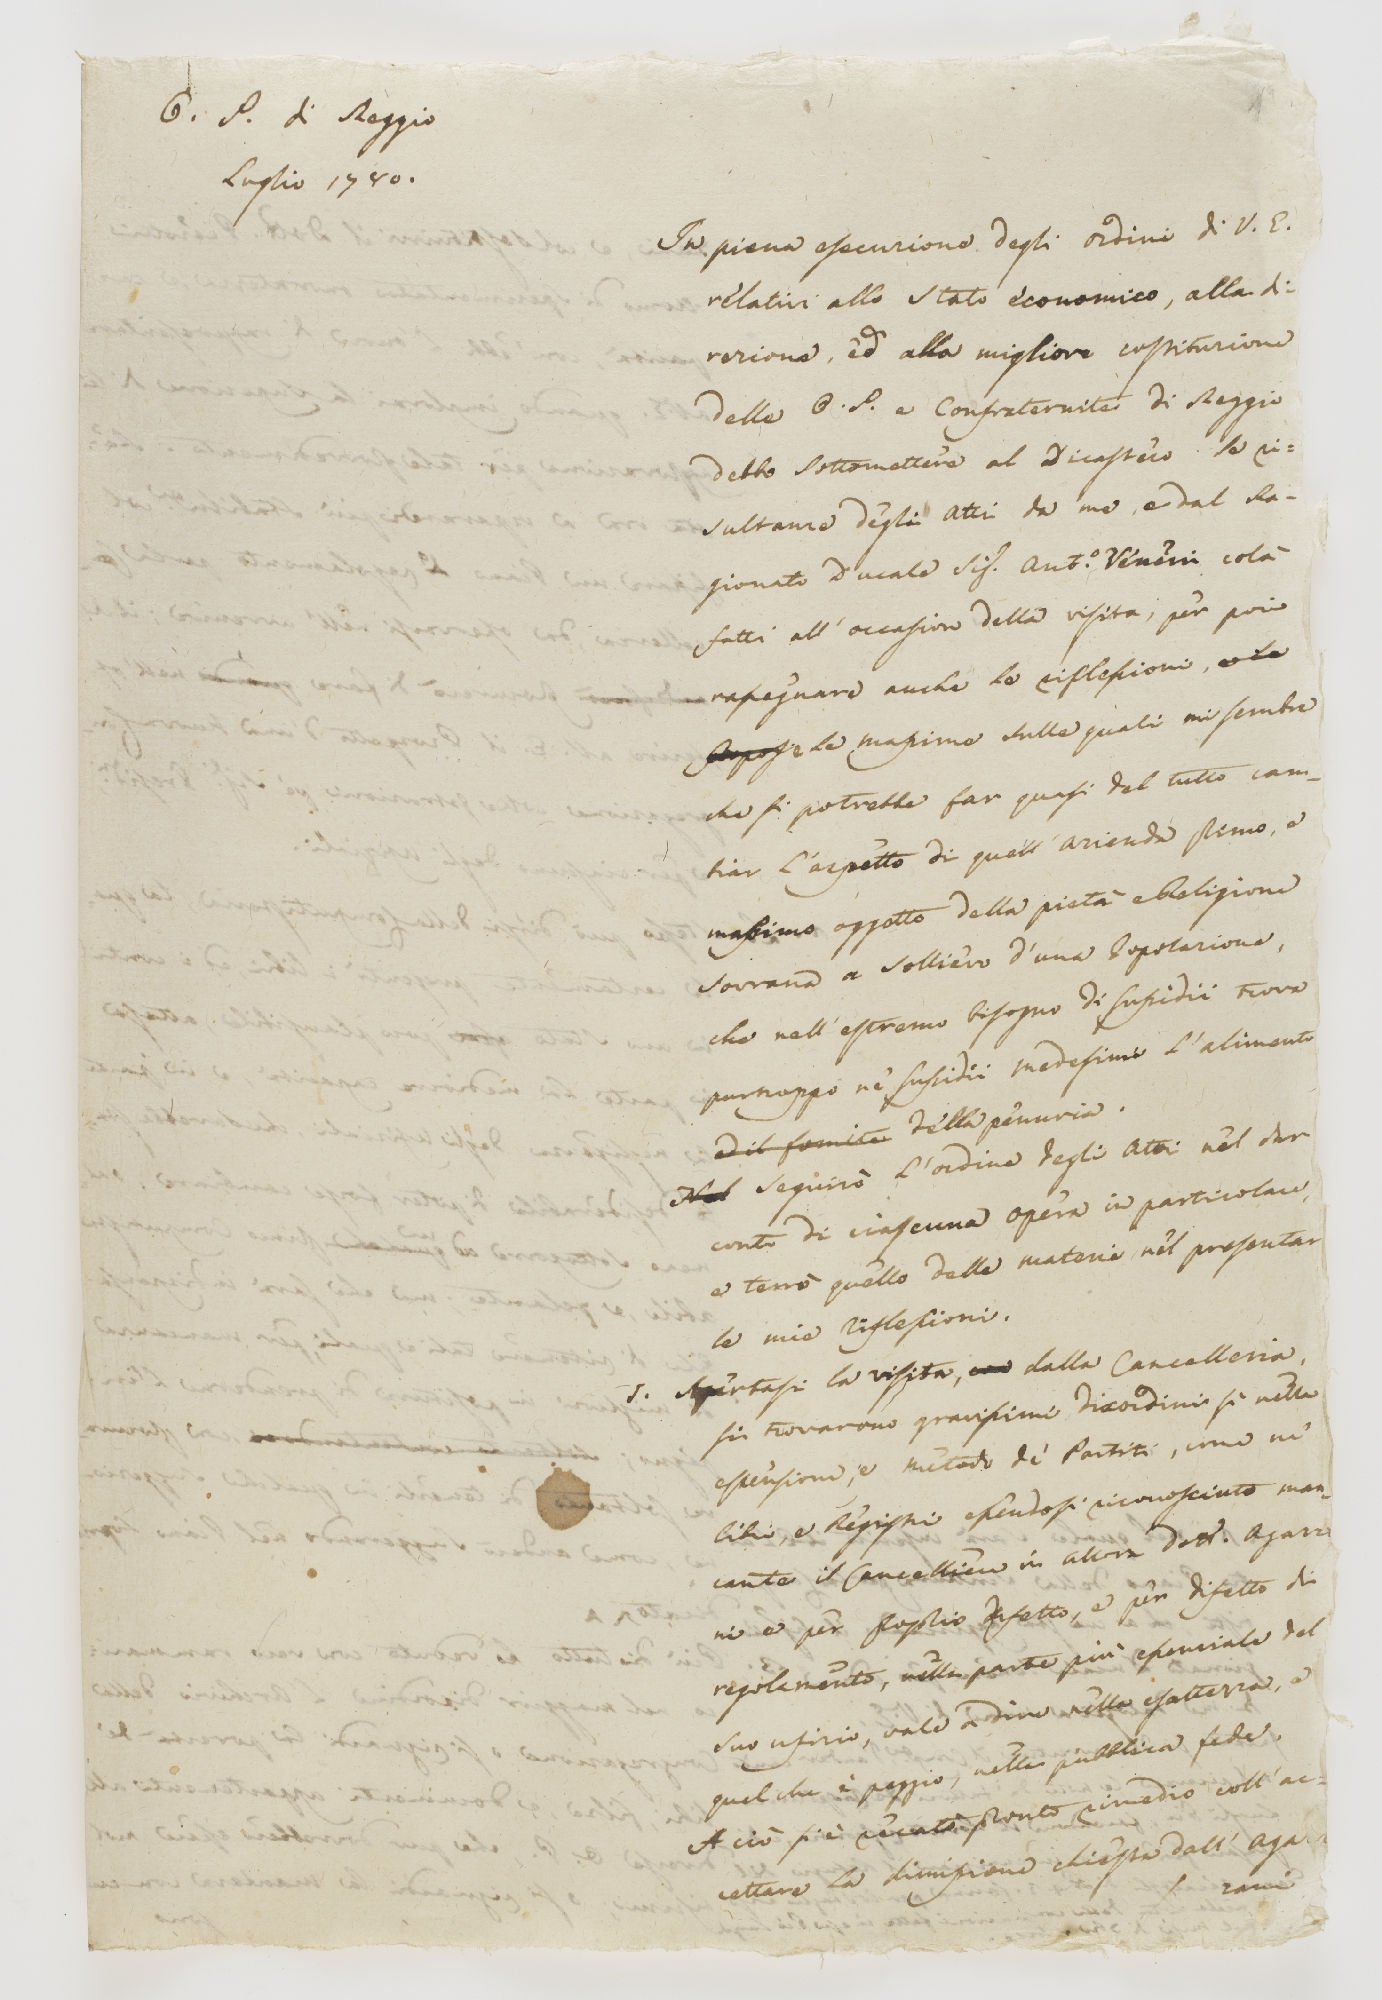 O. P. di Reggio
Luglio 1780.
In piena esecuzione degli ordini di V. E.
relativi allo stato economico, alla di-
rezione, ed alla migliore costituzione
delle O. P. e Confraternite di Reggio
debbo sottomettere al Dicastero le ri=
sultanze degli atti da me, e dal Ra-
gionato Ducale Sig. Ant.o Veneri colà
fatti all'occasion della visita, per poi
rassegnare anche le riflessioni, e le
massime sulle quali mi sembra
che si potrebbe far quasi del tutto cam-
biar l'aspetto di quell'azienda, e
massimo oggetto della pietà e Religione
sovrana a sollievo d'una Popolazione,
che nell'estremo bisogno di sussidii trova
purtroppo ne' sussidii medesimi l'alimento
ed il fomite della penuria.
Nel Seguirò l'ordine degli Atti nel dar
conto di ciascuna opera in particolare,
e terrò quello delle materie nel presentar
le mie riflessioni.
1. Apertasi la visita, dalla Cancelleria,
si trovarono gravissimi disordini sì nella
estensione, e metodo de' Partiti, come ne'
libri, e Registri essendosi riconosciuto man-
cante il Cancelliere in allora Dott. Agazzi
ni e per proprio difetto, e per difetto di
regolamento, nella parte più essenziale del
suo ufizio, vale a dire nella esattezza, e
quel che è peggio, nella pubblica fede.
A ciò si è recato pronto rimedio coll'ac=
cettare la dimissione chiesta dall'Aga
zzini